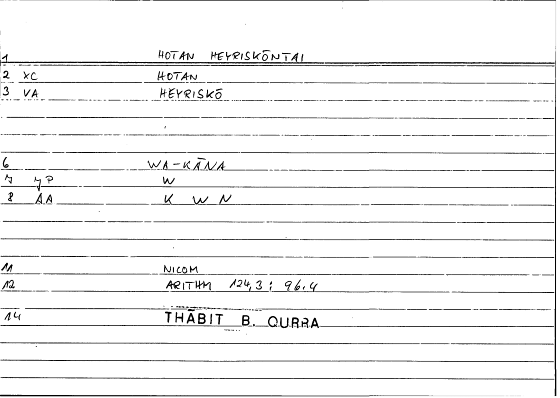 1 HOTAN HEYRISKŌNTAI
2 XC HOTAN
3 VA HEYRISKŌ
6 WA-KĀNA
7 YP W
8 AA K W N
11 NICOM
12 ARITHM 124,3 : 96.4
14 THĀBIT B. QURRA